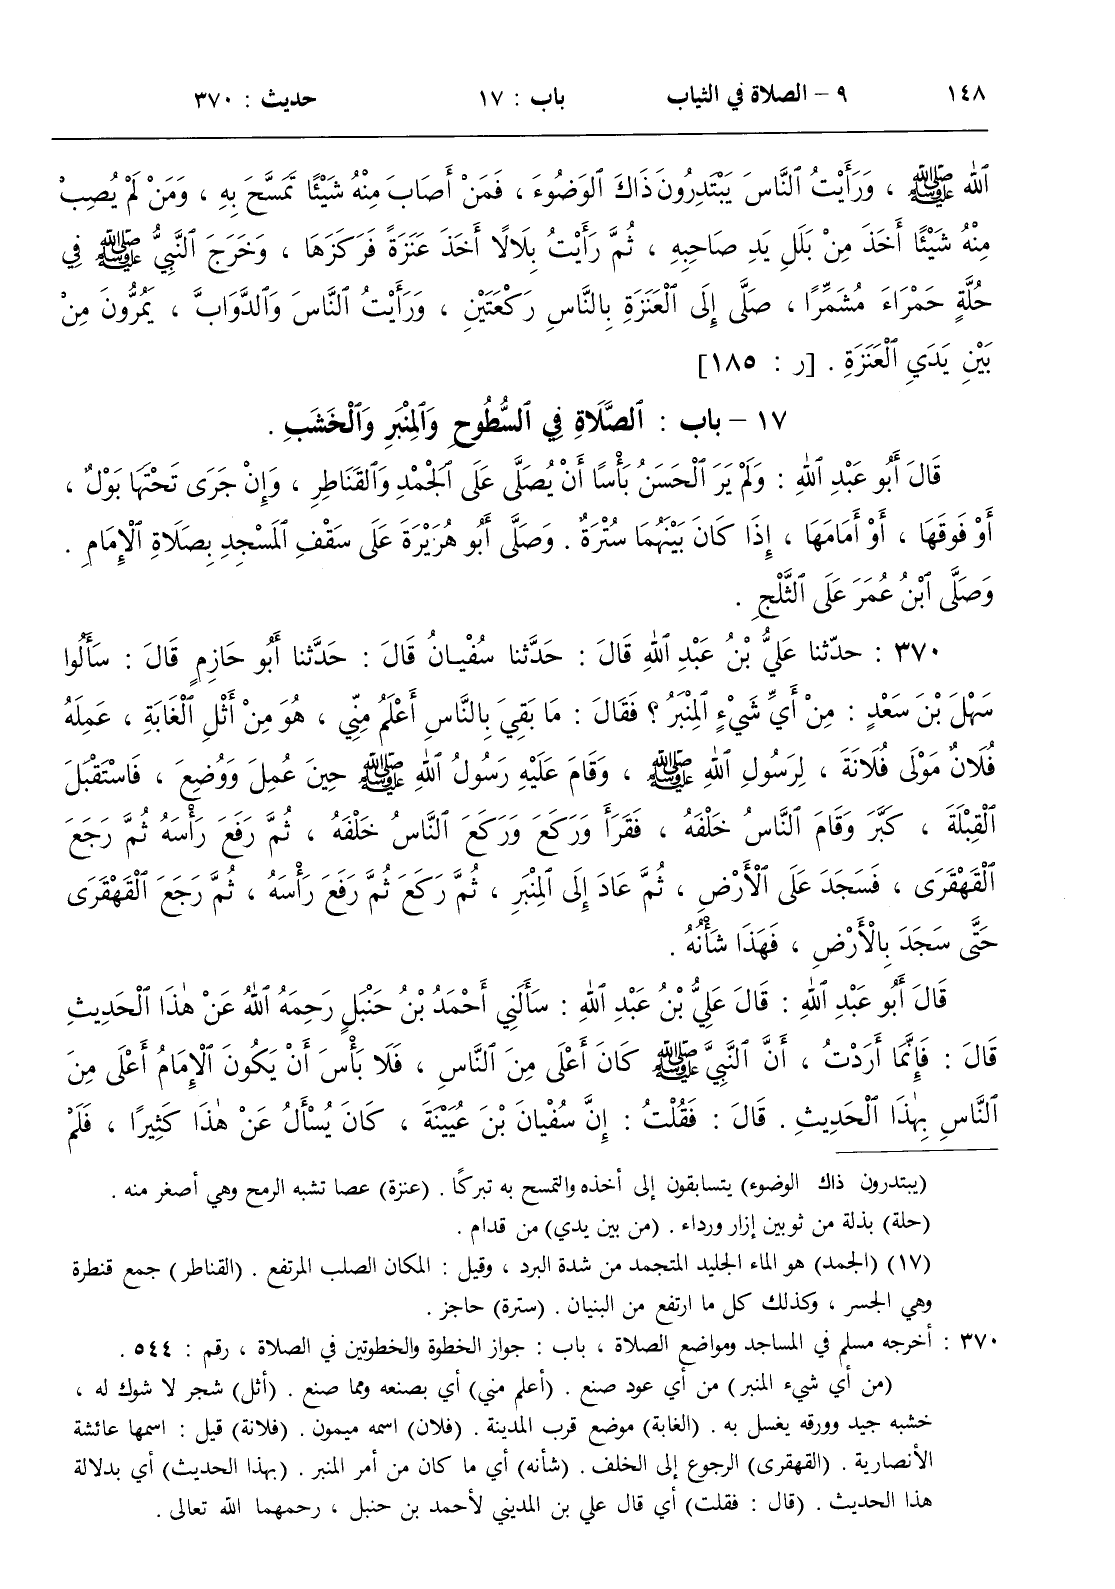 ١٤٨ ٩ – الصلاة في الثياب باب : ١٧ حديث : ٣٧٠
ٱللهِ ﷺ ، وَرَأَيْتُ ٱلنَّاسَ يَبْتَدِرُونَ ذَاكَ ٱلوَضُوءَ ، فَمَنْ أَصَابَ مِنْهُ شَيْئًا تَمَسَّحَ بِهِ ، وَمَنْ لَمْ يُصِبْ
مِنْهُ شَيْئًا أَخَذَ مِنْ بَلَلِ يَدِ صَاحِبِهِ ، ثُمَّ رَأَيْتُ بِلَالًا أَخَذَ عَنَزَةً فَرَكَزَهَا ، وَخَرَجَ ٱلنَّبِيُّ ﷺ فِي
حُلَّةٍ حَمْرَاءَ مُشَمِّرًا ، صَلَّى إِلَى ٱلْعَنَزَةِ بِالنَّاسِ رَكْعَتَيْنِ ، وَرَأَيْتُ ٱلنَّاسَ وَٱلدَّوَابَّ ، يَمُرُّونَ مِنْ
بَيْنِ يَدَيِ ٱلْعَنَزَةِ . [ر : ١٨٥]
١٧ – باب : ٱلصَّلَاةِ فِي ٱلسُّطُوحِ وَٱلمِنْبَرِ وَٱلْخَشَبِ .
قَالَ أَبُو عَبْدِ ٱللهِ : وَلَمْ يَرَ ٱلْحَسَنُ بَأْسًا أَنْ يُصَلَّى عَلَى ٱلجَمْدِ وَٱلقَنَاطِرِ ، وَإِنْ جَرَى تَحْتَهَا بَوْلٌ ،
أَوْ فَوقَهَا ، أَوْ أَمَامَهَا ، إِذَا كَانَ بَيْنَهُمَا سُتْرَةٌ . وَصَلَّى أَبُو هُرَيْرَةَ عَلَى سَقْفِ ٱلمَسْجِدِ بِصَلَاةِ ٱلْإِمَامِ .
وَصَلَّى ٱبْنُ عُمَرَ عَلَى ٱلثَّلْجِ .
٣٧٠ : حدّثنا عَلِيُّ بْنُ عَبْدِ ٱللهِ قَالَ : حَدَّثنا سُفْيـانُ قَالَ : حَدَّثنا أَبُو حَازِمٍ قَالَ : سَأَلُوا
سَهْلَ بْنَ سَعْدٍ : مِنْ أَيِّ شَيْءٍ ٱلمِنْبَرُ ؟ فَقَالَ : مَا بَقِيَ بِالنَّاسِ أَعْلَمُ مِنِّي ، هُوَ مِنْ أَثْلِ ٱلْغَابَةِ ، عَمِلَهُ
فُلَانٌ مَوْلَى فُلَانَةَ ، لِرَسُولِ ٱللهِ ﷺ ، وَقَامَ عَلَيْهِ رَسُولُ ٱللهِ ﷺ حِينَ عُمِلَ وَوُضِعَ ، فَاسْتَقْبَلَ
ٱلْقِبْلَةَ ، كَبَّرَ وَقَامَ ٱلنَّاسُ خَلْفَهُ ، فَقَرَأَ وَرَكَعَ وَرَكَعَ ٱلنَّاسُ خَلْفَهُ ، ثُمَّ رَفَعَ رَأْسَهُ ثُمَّ رَجَعَ
ٱلْقَهْقَرَى ، فَسَجَدَ عَلَى ٱلْأَرْضِ ، ثُمَّ عَادَ إِلَى ٱلمِنْبَرِ ، ثُمَّ رَكَعَ ثُمَّ رَفَعَ رَأْسَهُ ، ثُمَّ رَجَعَ ٱلْقَهْقَرَى
حَتَّى سَجَدَ بِالْأَرْضِ ، فَهَذَا شَأْنُهُ .
قَالَ أَبُو عَبْدِ ٱللهِ : قَالَ عَلِيُّ بْنُ عَبْدِ ٱللهِ : سَأَلَنِي أَحْمَدُ بْنُ حَنْبَلٍ رَحِمَهُ ٱللهُ عَنْ هٰذَا ٱلْحَدِيثِ
قَالَ : فَإِنَّمَا أَرَدْتُ ، أَنَّ ٱلنَّبِيَّ ﷺ كَانَ أَعْلَى مِنَ ٱلنَّاسِ ، فَلَا بَأْسَ أَنْ يَكُونَ ٱلْإِمَامُ أَعْلَى مِنَ
ٱلنَّاسِ بِهٰذَا ٱلْحَدِيثِ . قَالَ : فَقُلْتُ : إِنَّ سُفْيَانَ بْنَ عُيَيْنَةَ ، كَانَ يُسْأَلُ عَنْ هٰذَا كَثِيرًا ، فَلَمْ
(يبتدرون ذاك الوضوء) يتسابقون إلى أخذه والتمسح به تبركًا . (عنزة) عصا تشبه الرمح وهي أصغر منه .
(حلة) بذلة من ثوبين إزار ورداء . (من بين يدي) من قدام .
(١٧) (الجمد) هو الماء الجليد المتجمد من شدة البرد ، وقيل : المكان الصلب المرتفع . (القناطر) جمع قنطرة
وهي الجسر ، وكذلك كل ما ارتفع من البنيان . (سترة) حاجز .
٣٧٠ : أخرجه مسلم في المساجد ومواضع الصلاة ، باب : جواز الخطوة والخطوتين في الصلاة ، رقم : ٥٤٤ .
(من أي شيء المنبر) من أي عود صنع . (أعلم مني) أي بصنعه ومما صنع . (أثل) شجر لا شوك له ،
خشبه جيد وورقه يغسل به . (الغابة) موضع قرب المدينة . (فلان) اسمه ميمون . (فلانة) قيل : اسمها عائشة
الأنصارية . (القهقرى) الرجوع إلى الخلف . (شأنه) أي ما كان من أمر المنبر . (بهذا الحديث) أي بدلالة
هذا الحديث . (قال : فقلت) أي قال علي بن المديني لأحمد بن حنبل ، رحمهما الله تعالى .